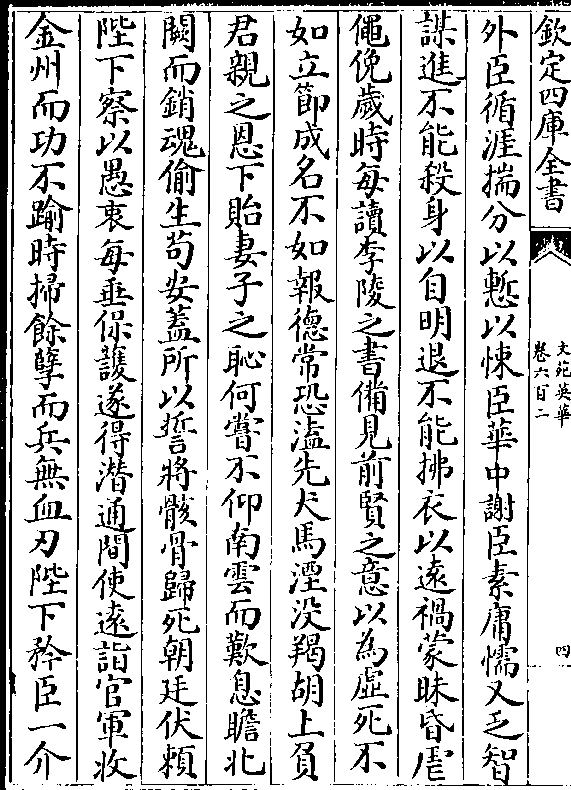 欽定四庫全書
文苑英華
卷六百二
四
外臣循涯揣分以慙以悚臣華中謝臣素庸懦又乏智
謀進不能殺身以自明退不能拂衣以遠禍蒙昧昏虐
僶俛歲時每讀李陵之書備見前賢之意以為虛死不
如立節成名不如報德常恐溘先犬馬湮没羯胡上負
君親之恩下貽妻子之恥何嘗不仰南雲而歎息瞻北
闕而銷魂偷生苟安蓋所以誓將骸骨歸死朝廷伏頼
陛下察以愚衷每垂保護遂得潛通間使遠詣官軍收
金州而功不踰時掃餘孽而兵無血刃陛下矜臣一介